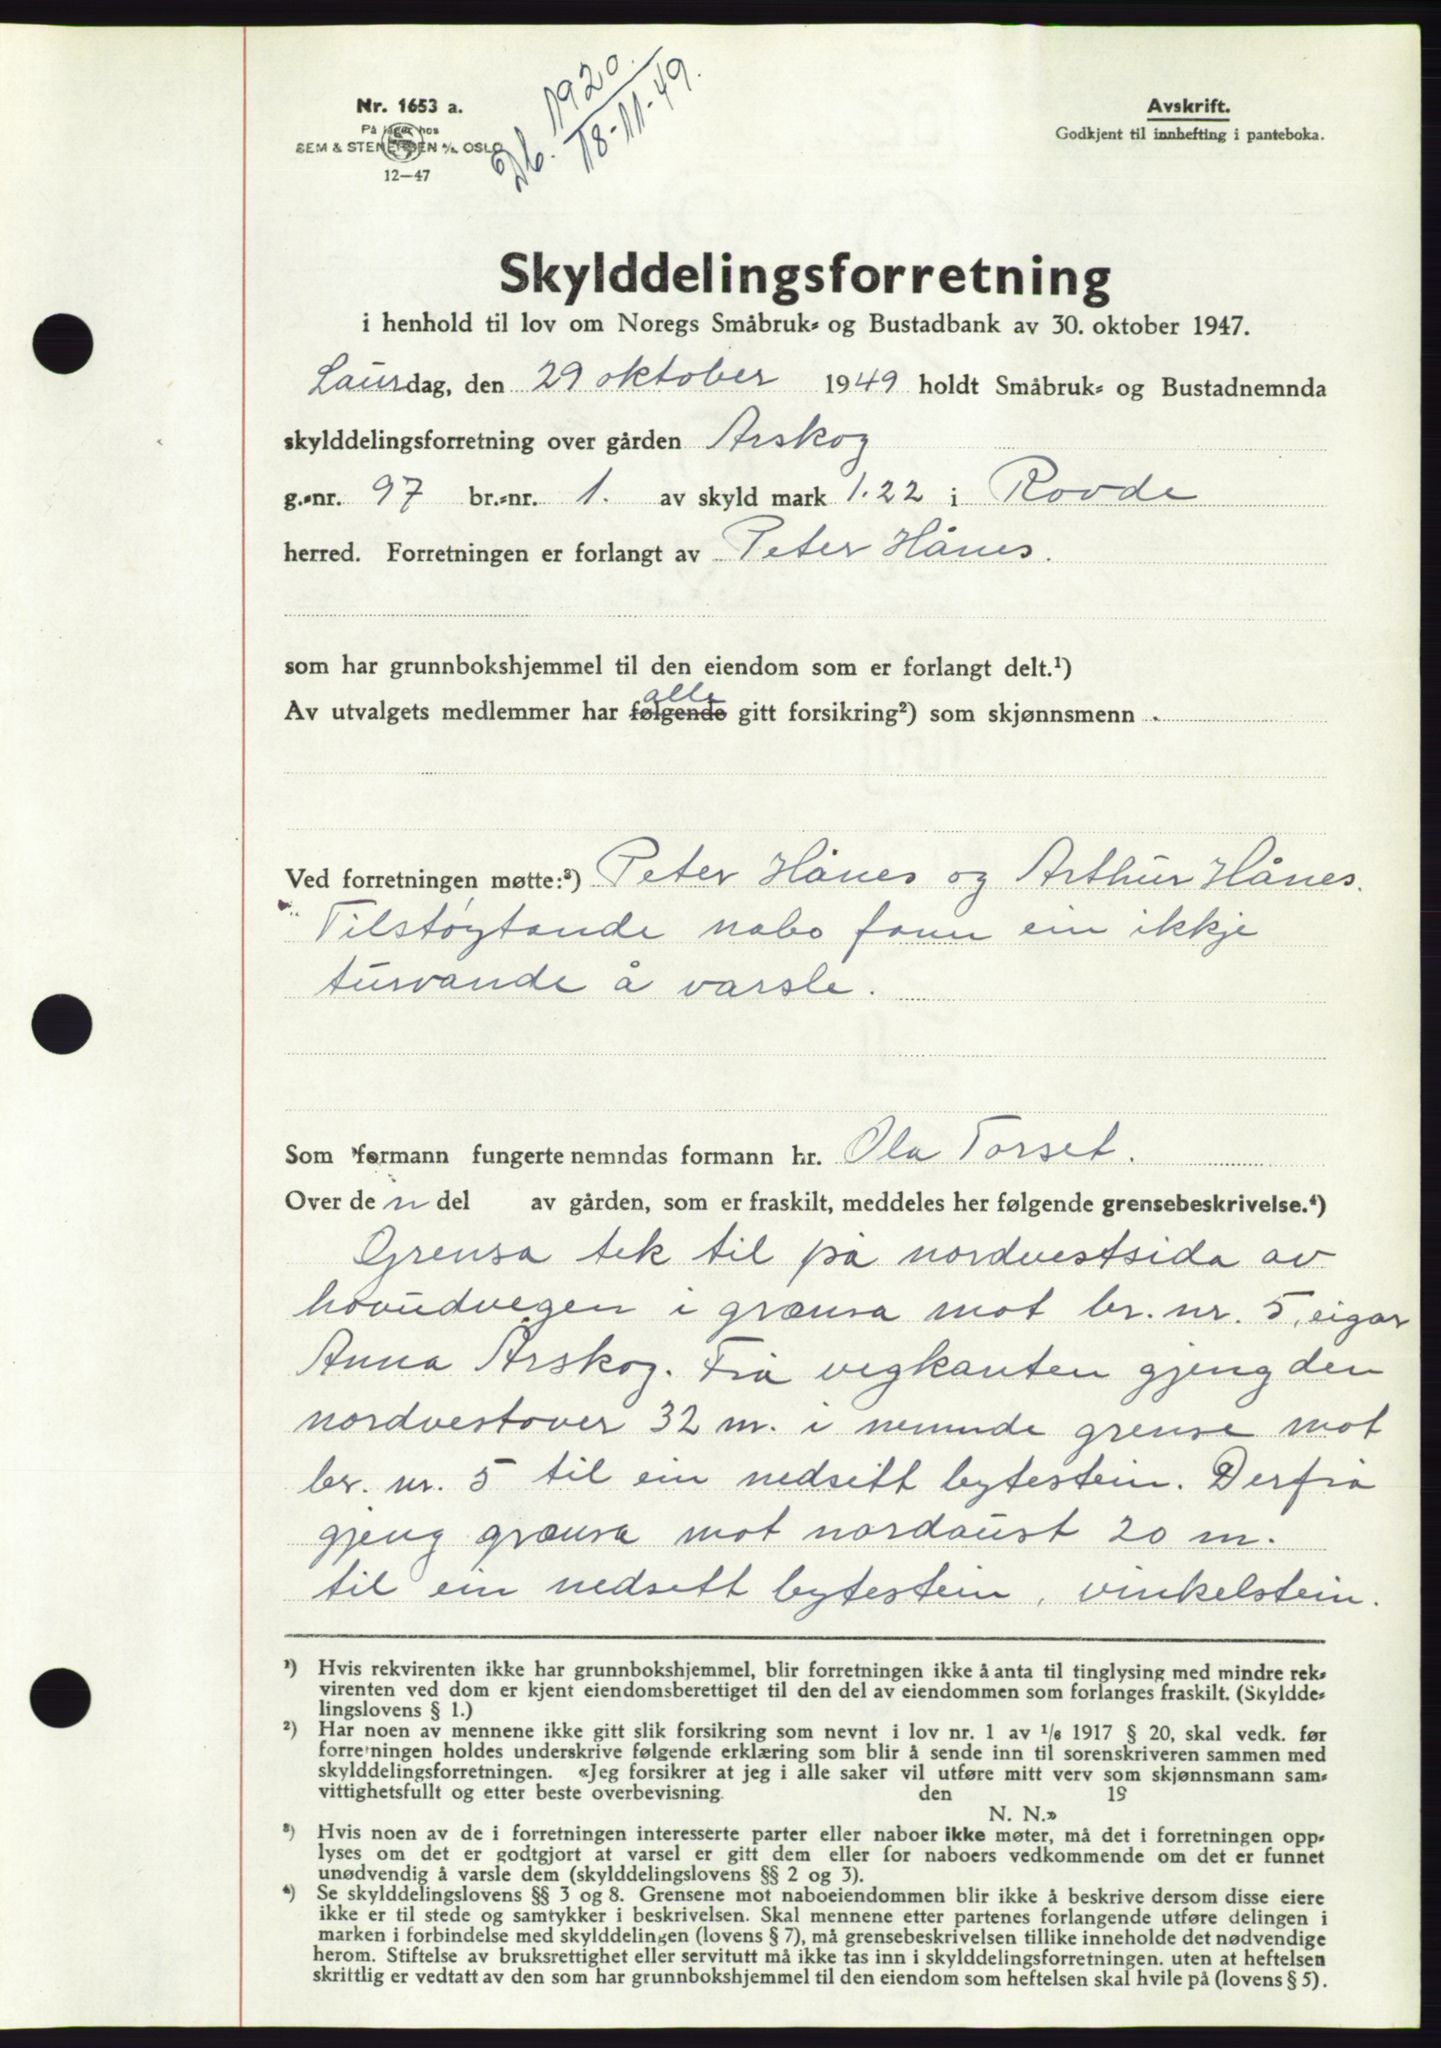 Nr. 1653 a.
På lager hos
SEM & STENERSEN A/S OSLO
12—47
Db. 1920
18-11-49.
Avskrift.
Godkjent til innhefting i panteboka.
Skylddelingsforretning
i henhold til lov om Noregs Småbruk- og Bustadbank av 30. oktober 1947.
Laurdag, den 29 oktober 1949 holdt Småbruk- og Bustadnemnda
skylddelingsforretning over gården Arskog
g.-nr. 97 br.-nr. 1. av skyld mark 1.22 i Rovde
herred. Forretningen er forlangt av Peter Hånes.
som har grunnbokshjemmel til den eiendom som er forlangt delt.¹)
alle
Av utvalgets medlemmer har følgende gitt forsikring²) som skjønnsmenn .
Ved forretningen møtte:³) Peter Hånes og Arthur Hånes.
Tilstøytande nabo fann ein ikkje
turvande å varsle.
Som formann fungerte nemndas formann hr. Ola Torset.
Over den del av gården, som er fraskilt, meddeles her følgende grensebeskrivelse.⁴)
Grensa tek til på nordvestsida av
hovudvegen i grænsa mot br. nr. 5, eigar
Anna Årskog. Frå vegkanten gjeng den
nordvestover 32 m. i nemnde grense mot
br. nr. 5 til ein nedsett bytestein. Derfrå
gjeng grænsa mot nordaust 20 m.
til ein nedsett bytestein, vinkelstein.
¹) Hvis rekvirenten ikke har grunnbokshjemmel, blir forretningen ikke å anta til tinglysing med mindre rek-
virenten ved dom er kjent eiendomsberettiget til den del av eiendommen som forlanges fraskilt. (Skyldde-
lingslovens § 1.)
²) Har noen av mennene ikke gitt slik forsikring som nevnt i lov nr. 1 av 1/6 1917 § 20, skal vedk. før
forretningen holdes underskrive følgende erklæring som blir å sende inn til sorenskriveren sammen med
skylddelingsforretningen. «Jeg forsikrer at jeg i alle saker vil utføre mitt verv som skjønnsmann sam-
vittighetsfullt og etter beste overbevisning. den 19
N. N.»
³) Hvis noen av de i forretningen interesserte parter eller naboer ikke møter, må det i forretningen opp-
lyses om det er godtgjort at varsel er gitt dem eller for naboers vedkommende om det er funnet
unødvendig å varsle dem (skylddelingslovens §§ 2 og 3).
⁴) Se skylddelingslovens §§ 3 og 8. Grensene mot naboeiendommen blir ikke å beskrive dersom disse eiere
ikke er til stede og samtykker i beskrivelsen. Skal mennene etter partenes forlangende utføre delingen i
marken i forbindelse med skylddelingen (lovens § 7), må grensebeskrivelsen tillike inneholde det nødvendige
herom. Stiftelse av bruksrettighet eller servitutt må ikke tas inn i skylddelingsforretningen. uten at heftelsen
skrittlig er vedtatt av den som har grunnbokshjemmel til den eiendom som heftelsen skal hvile på (lovens § 5).